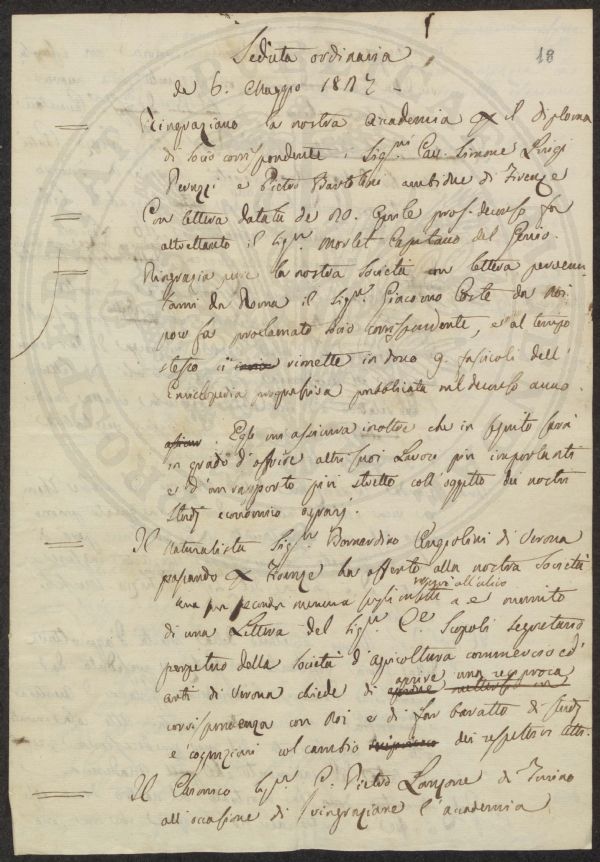 18
Seduta ordinaria
de 6. Maggio 1827
Ringraziano la nostra Accademia il diploma
di Socio corrispondente i Sigri Cav. Simone Luigi
Peruzzi e Pietro Bartolini ambidue di Firenze
Con lettera datata de 20. Aprile pros. decorso fa
altrettanto il Sigr. Morlet Capitano del Genio.
Ringrazia pure la nostra Società con lettera
da Roma il Sigr. Giacomo Coste da Noi
poco fa proclamato socio corrispondente, e al tempo
stesso ci rimette in dono 9. fascicoli dell'
Enciclopedia pubblicata nel decorso anno.
Egli mi assicura inoltre che in seguito sarà
in grado d'offrire altri suoi Lavori più importanti
e d'un rapporto più stretto coll'oggetto dei nostri
studj economico agrarj.
Il Naturalista Sigr. Bernardino Angiolini di Verona
passando Firenze ha offerto alla nostra Società
una seconda memoria sugli insetti e munito
di una Lettera del Sigr. Ce Scopoli segretario
perpetuo della Società d'agricoltura commercio ed
arti di Verona chiede di aprire una reciproca
corrispondenza con Noi e di far baratto di studj
e cognizioni col cambio dei respettivi atti.
Il Chimico Sigr. Pietro di Torino
all'occasione di ringraziare l'accademia